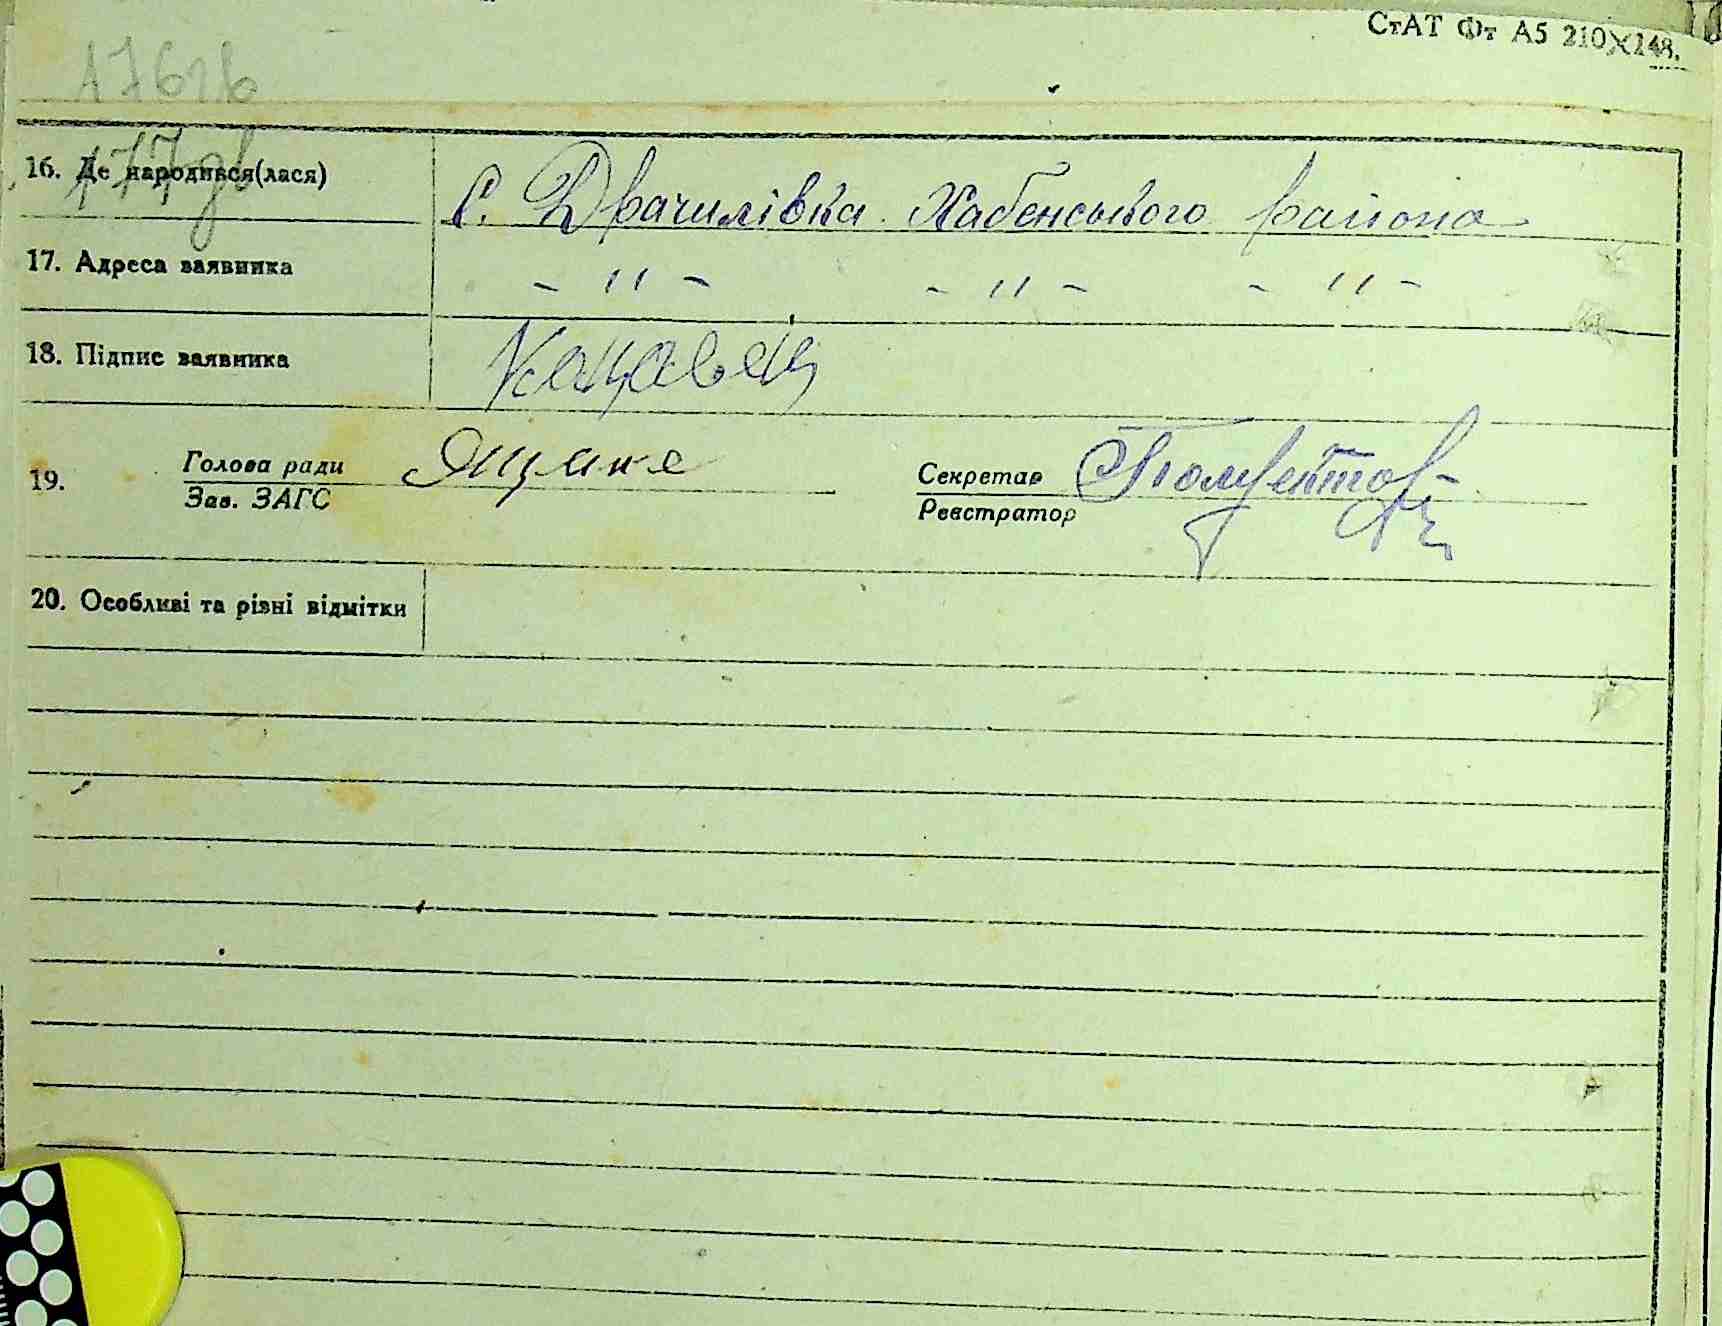 СтАТ Фт А5 210X148.
176зв
177дв
16. Де народився(лася)
с. Драчилівка Хабенського района
17. Адреса заявника
- " - - " - - " -
18. Підпис заявника
19. Голова ради
Зав. ЗАГС
Секретар
Реєстратор
20. Особливі та різні відмітки